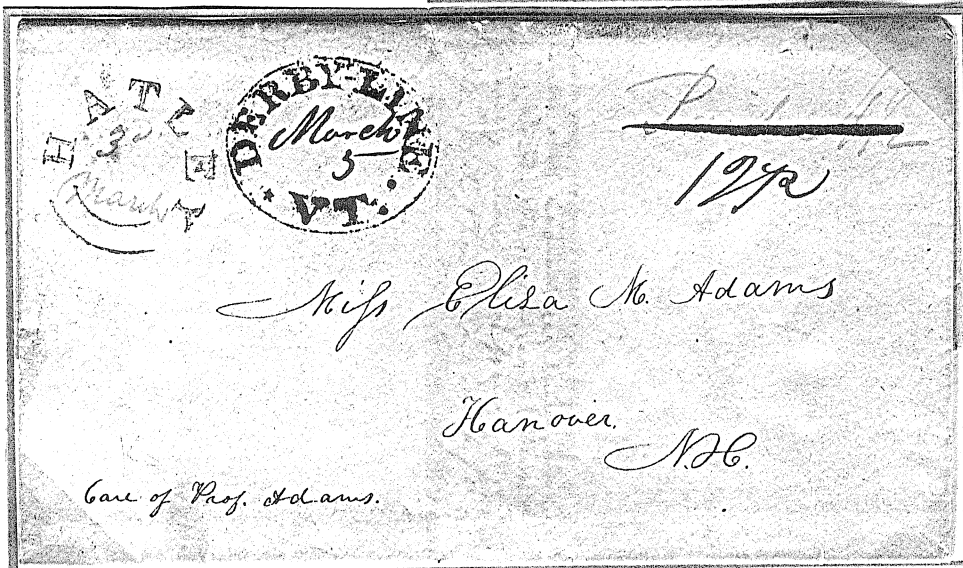 HATLEY
3d
March
DERBY-LINE
March
5
VT.
12½
Miſs Eliza M. Adams
Hanover.
N.H.
Care of Prof. Adams.